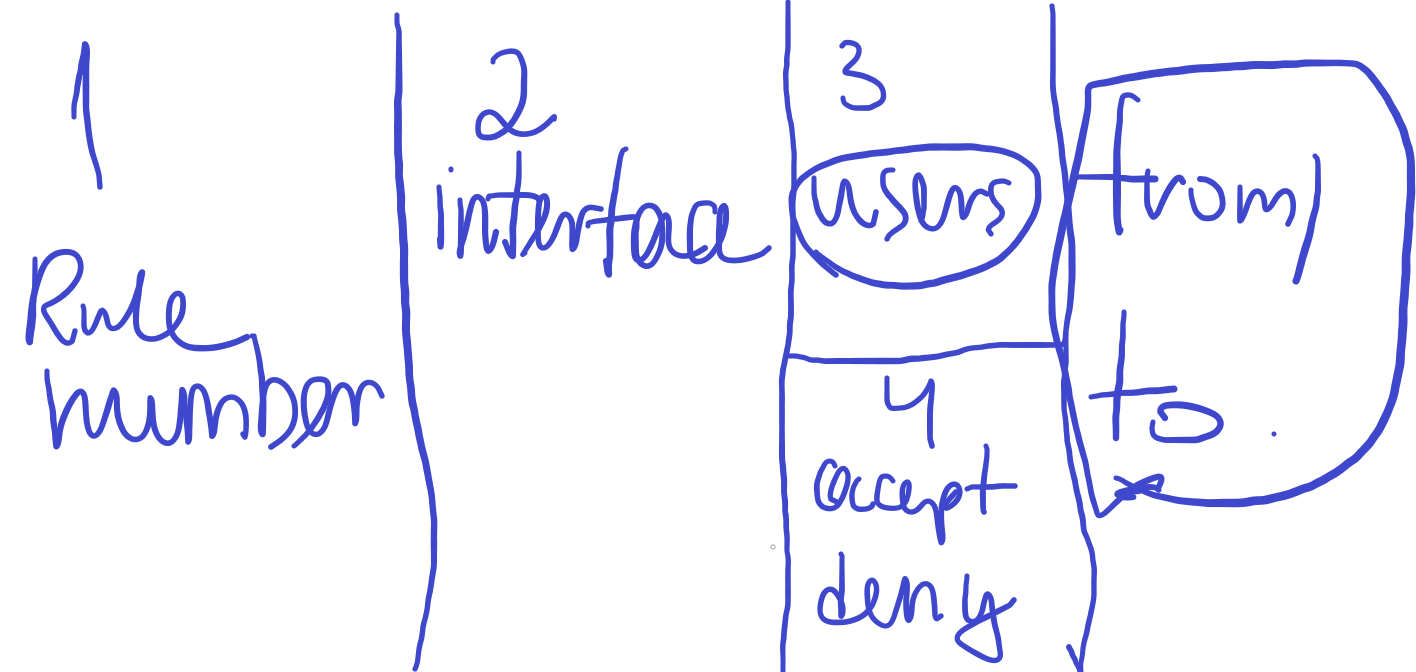 1
Rule
number
2
interface
3
users
4
accept
deny
from/
to